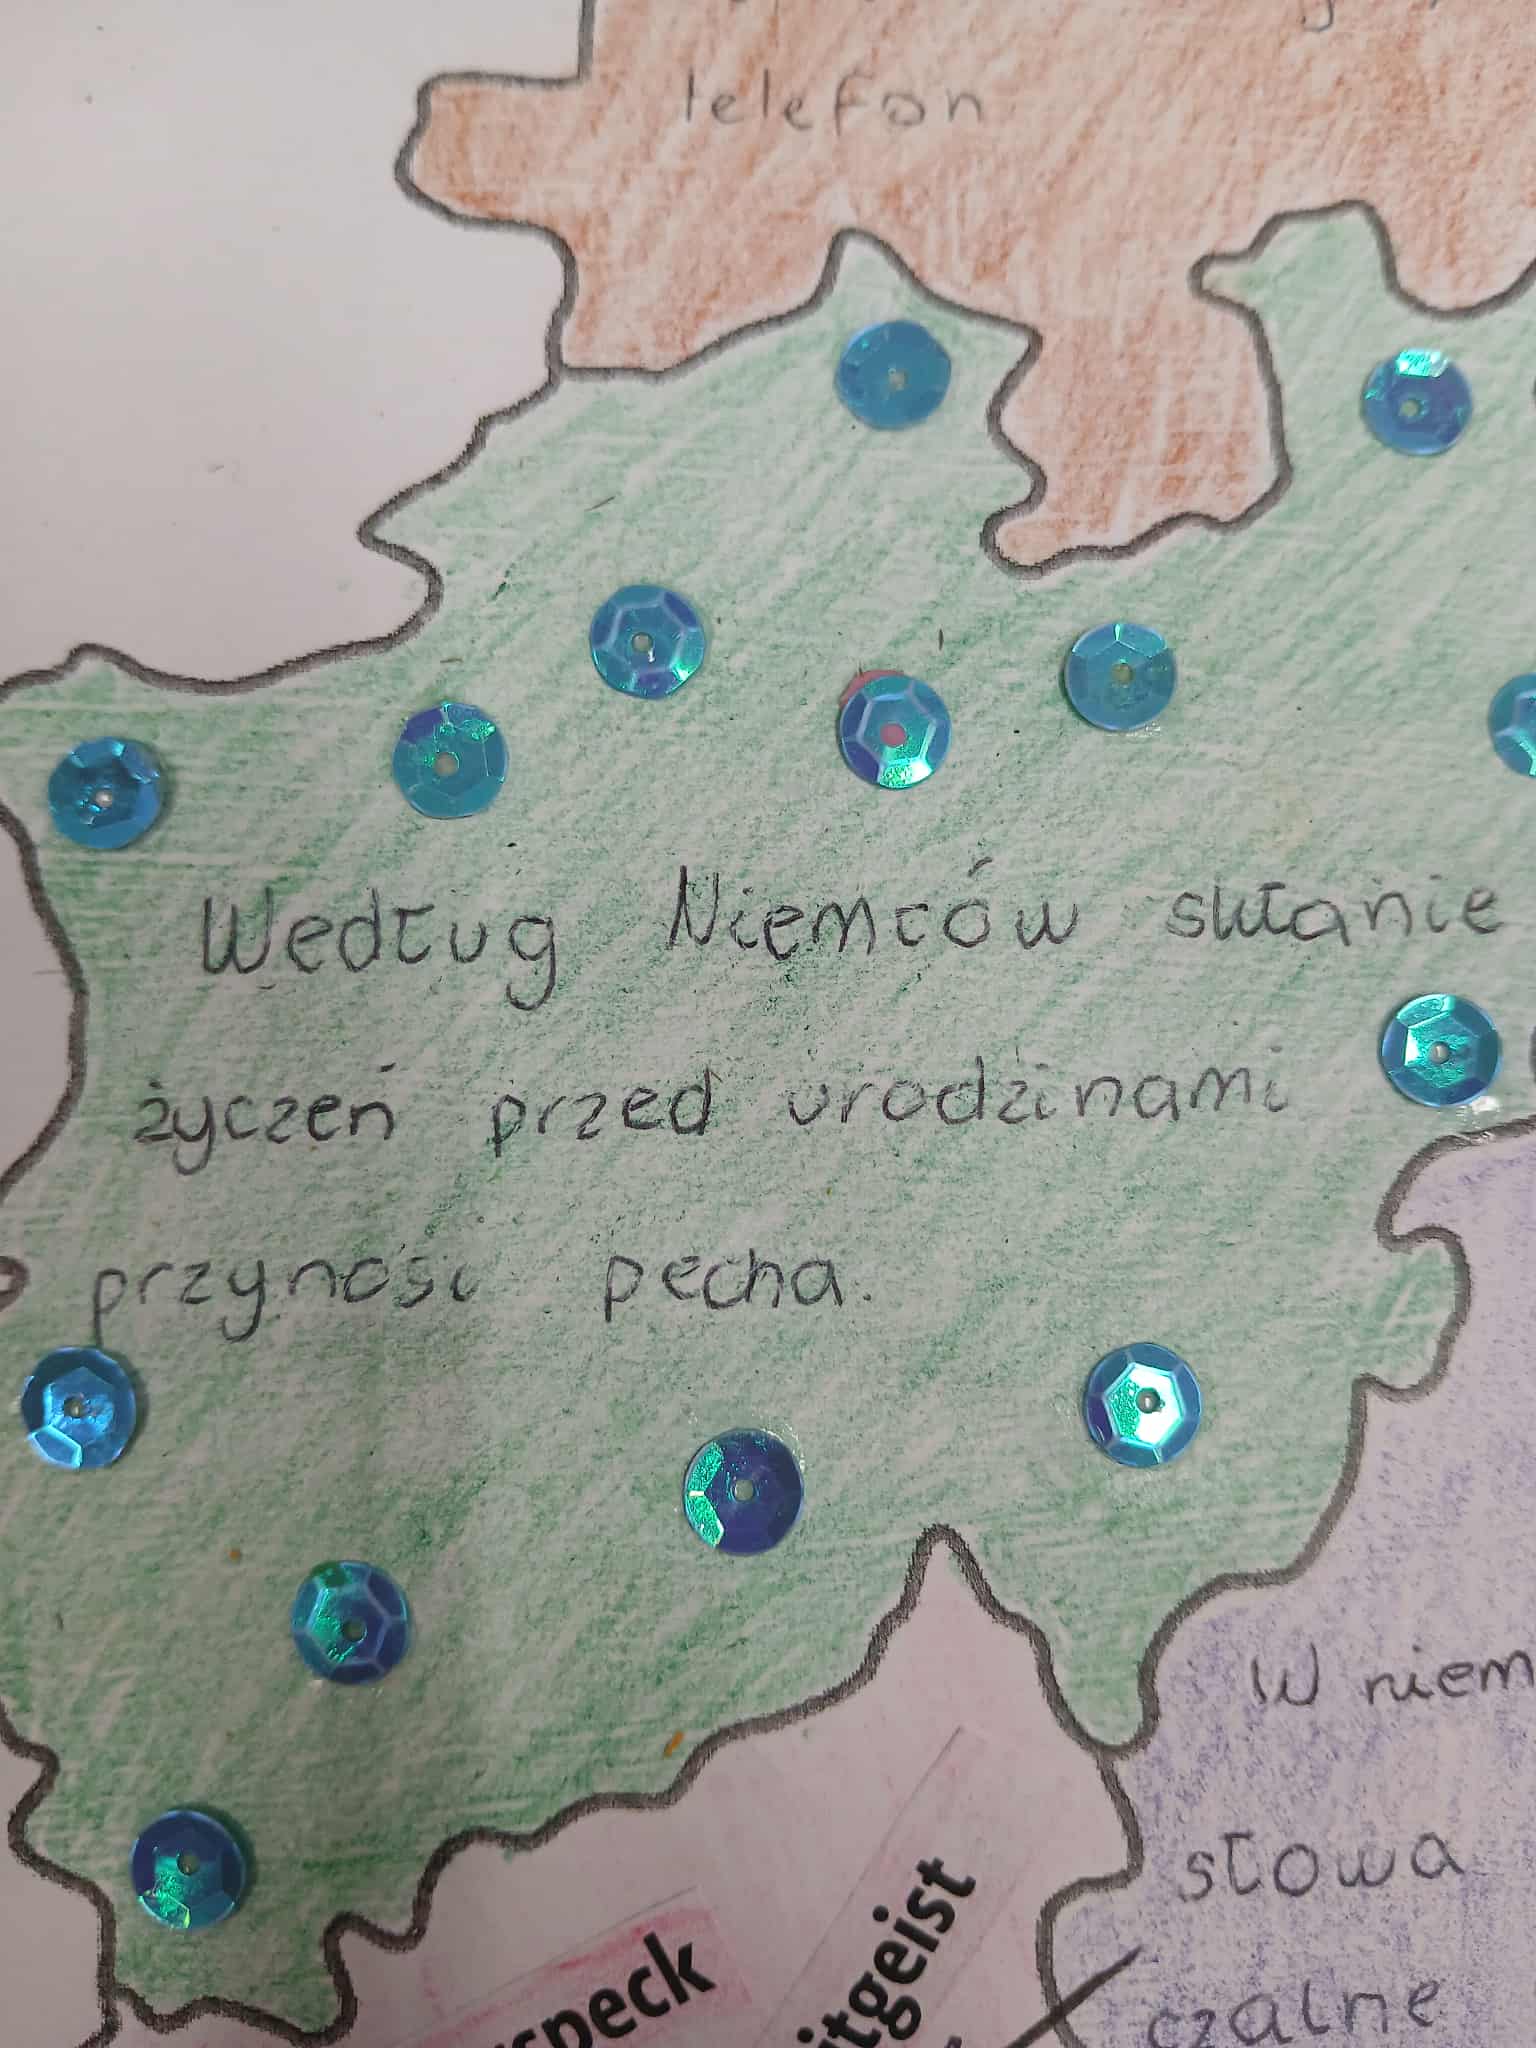 telefon
Według Niemców skłanie
życzeń przed urodzinami
przynosi pecha.
W niem
słowa
czalne
speck
itgeist